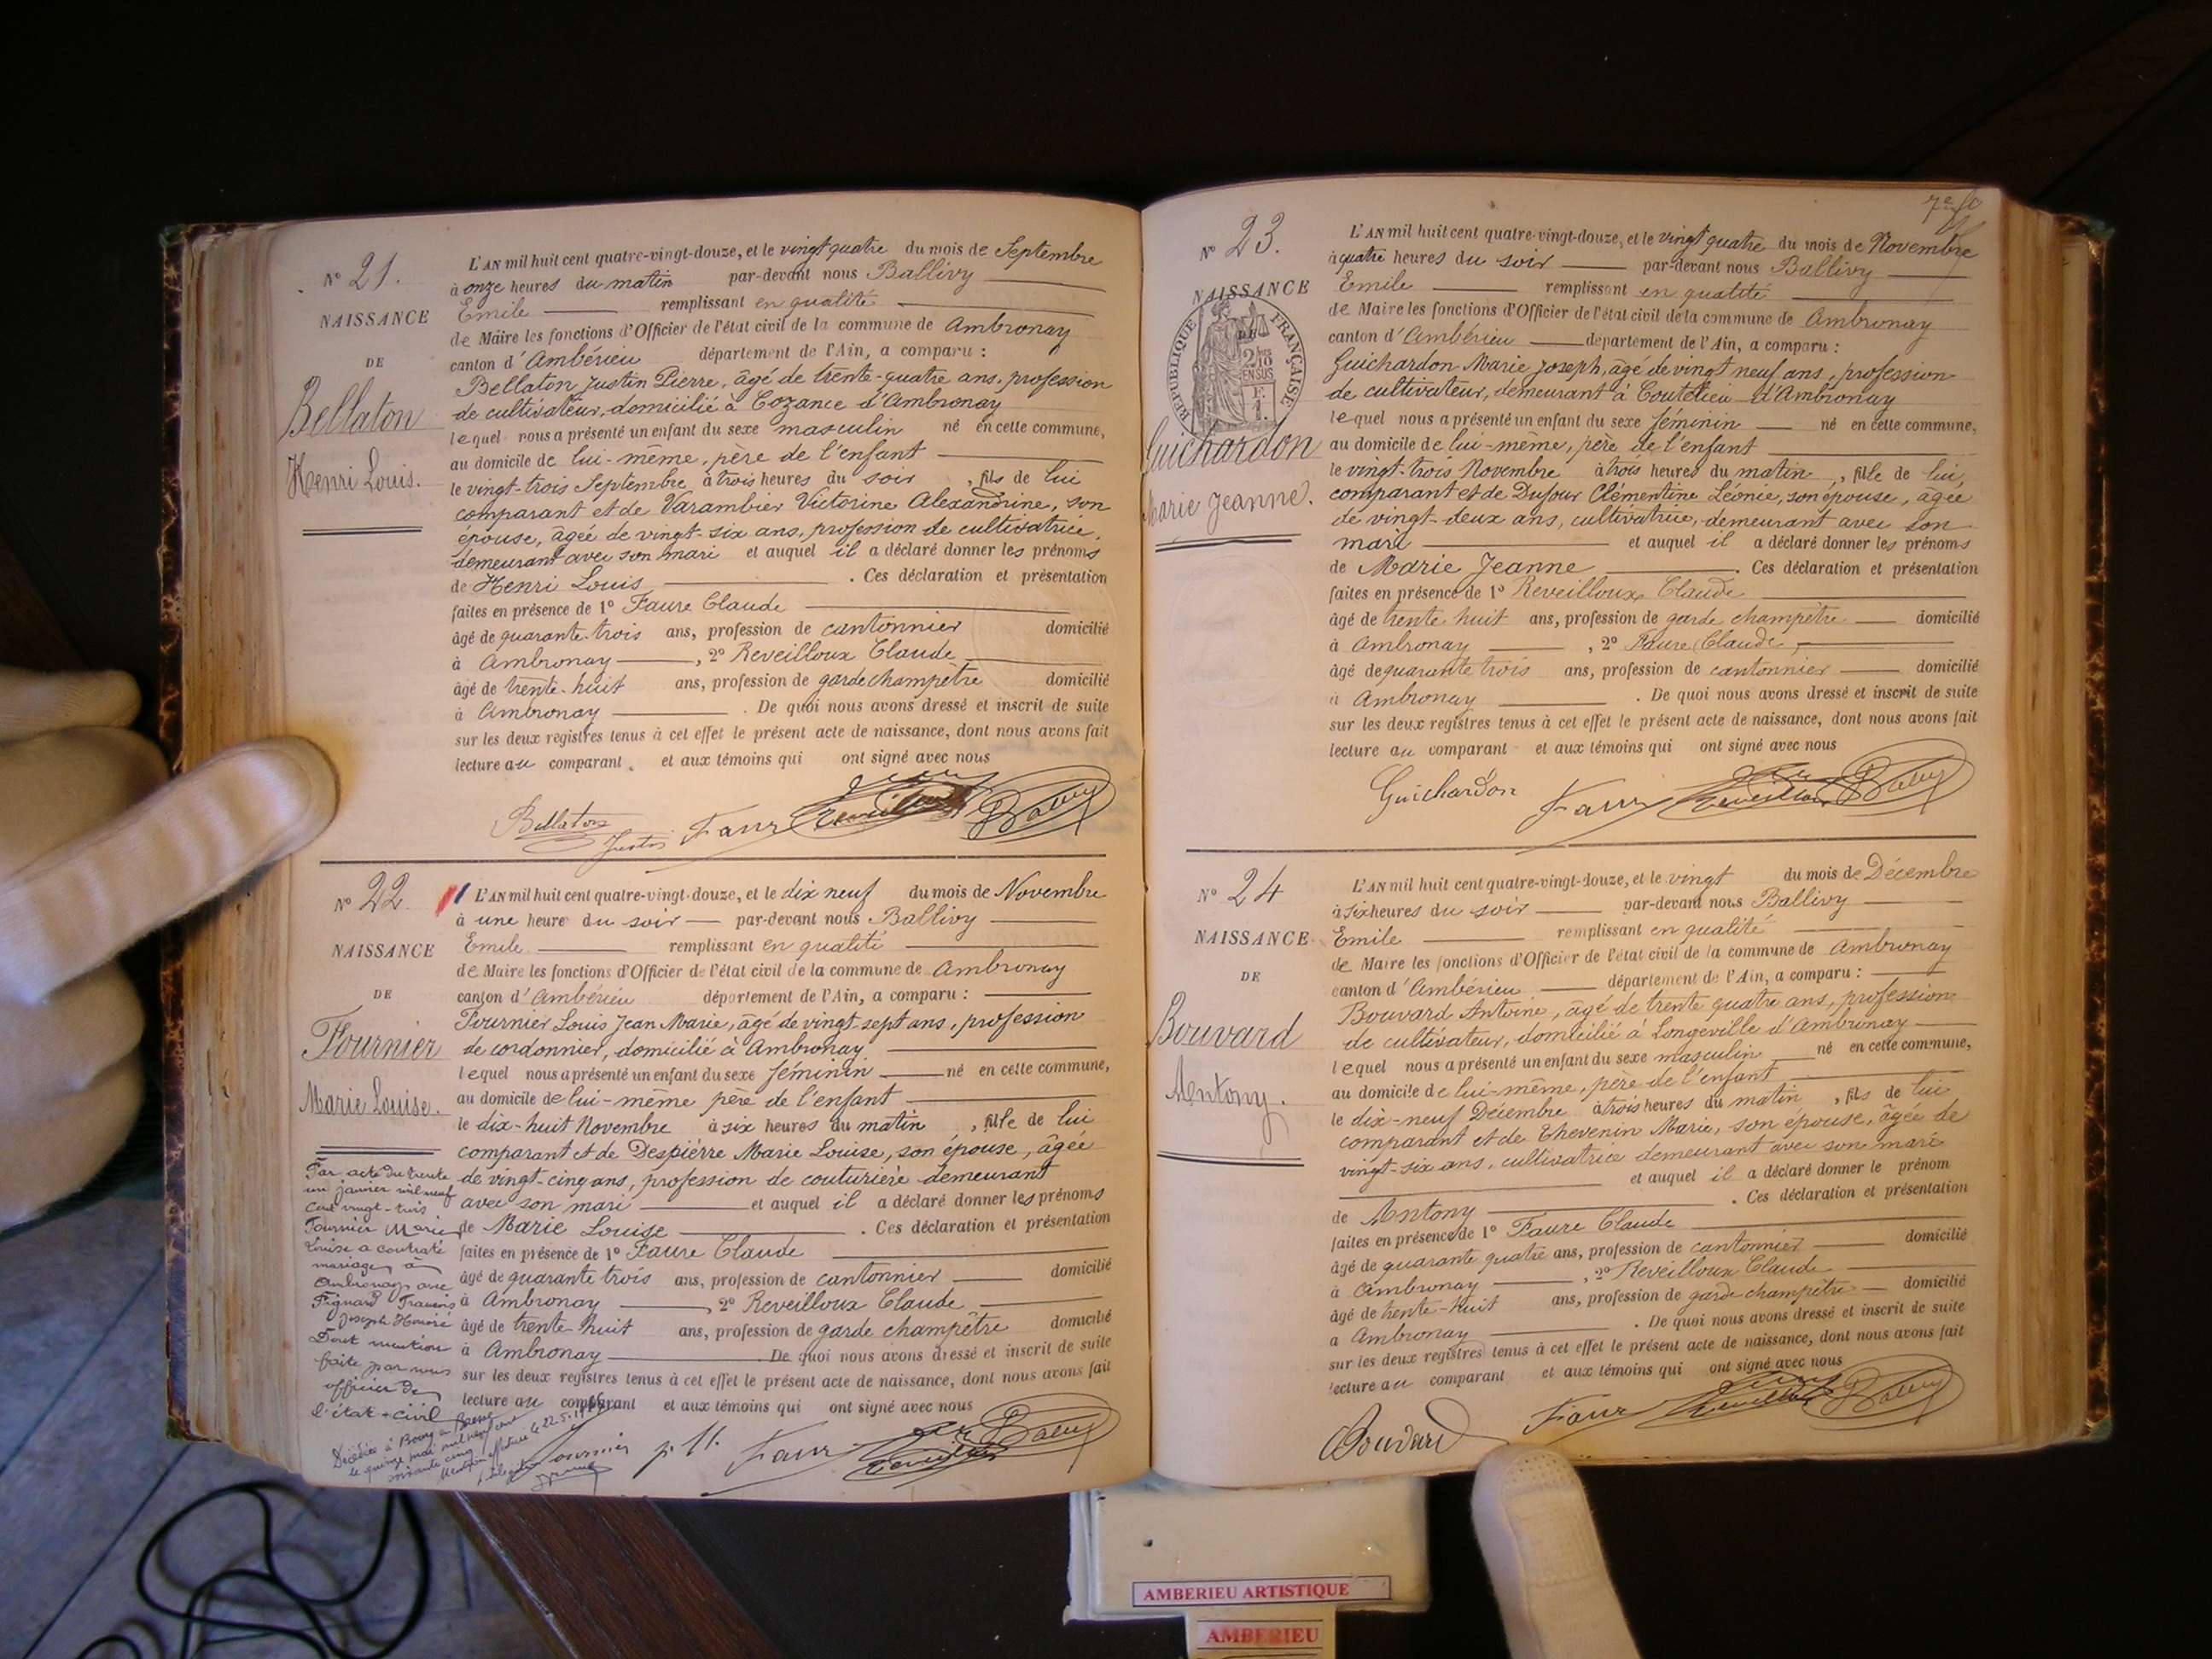 N° 21.
NAISSANCE
DE
Bellaton
Henri Louis.
L'AN mil huit cent quatre-vingt-douze, et le vingt quatre du mois de Septembre
à onze heures du matin par-devant nous Ballivy
Emile remplissant en qualité
de Maire les fonctions d'Officier de l'état civil de la commune de Ambronay
canton d'Ambérieu département de l'Ain, a comparu :
Bellaton Justin Pierre, âgé de trente-quatre ans, profession
de cultivateur, domicilié à Cozance d'Ambronay
lequel nous a présenté un enfant du sexe masculin né en cette commune,
au domicile de lui-même, père de l'enfant
le vingt-trois Septembre à trois heures du soir, fils de lui
comparant et de Varambier Victorine Alexandrine, son
épouse, âgée de vingt-six ans, profession de cultivatrice,
demeurant avec son mari et auquel il a déclaré donner les prénoms
de Henri Louis. Ces déclaration et présentation
faites en présence de 1° Faure Claude
âgé de quarante-trois ans, profession de cantonnier domicilié
à Ambronay, 2° Reveilloux Claude
âgé de trente-huit ans, profession de garde champêtre domicilié
à Ambronay. De quoi nous avons dressé et inscrit de suite
sur les deux registres tenus à cet effet le présent acte de naissance, dont nous avons fait
lecture au comparant et aux témoins qui ont signé avec nous
Bellaton
Justin Faure Reveilloux Ballivy
N° 22
NAISSANCE
DE
Fournier
Marie Louise.
L'AN mil huit cent quatre-vingt-douze, et le dix neuf du mois de Novembre
à une heure du soir par-devant nous Ballivy
Emile remplissant en qualité
de Maire les fonctions d'Officier de l'état civil de la commune de Ambronay
canton d'Ambérieu département de l'Ain, a comparu :
Fournier Louis Jean Marie, âgé de vingt-sept ans, profession
de cordonnier, domicilié à Ambronay
lequel nous a présenté un enfant du sexe féminin né en cette commune,
au domicile de lui-même père de l'enfant
le dix-huit Novembre à six heures du matin, fille de lui
comparant et de Despierre Marie Louise, son épouse, âgée
de vingt-cinq ans, profession de couturière demeurant
avec son mari et auquel il a déclaré donner les prénoms
de Marie Louise. Ces déclaration et présentation
faites en présence de 1° Faure Claude
âgé de quarante trois ans, profession de cantonnier domicilié
à Ambronay, 2° Reveilloux Claude
âgé de trente-huit ans, profession de garde champêtre domicilié
à Ambronay De quoi nous avons dressé et inscrit de suite
sur les deux registres tenus à cet effet le présent acte de naissance, dont nous avons fait
lecture au comparant et aux témoins qui ont signé avec nous
Fournier Faure Reveilloux Ballivy
Par acte du trente
un janvier mil neuf
cent vingt-trois
Fournier Marie
Louise a contracté
mariage à
Ambronay avec
Joseph Honoré
Dont mention
faite par nous
officier de
l'état civil
Décédée à Bourg en Bresse
le quinze mai mil neuf cent
soixante cinq
N° 23.
NAISSANCE
DE
RÉPUBLIQUE FRANÇAISE
2/10 EN SUS
1 F.
Guichardon
Marie Jeanne.
L'AN mil huit cent quatre-vingt-douze, et le vingt quatre du mois de Novembre
à quatre heures du soir par-devant nous Ballivy
Emile remplissant en qualité
de Maire les fonctions d'Officier de l'état civil de la commune de Ambronay
canton d'Ambérieu département de l'Ain, a comparu :
Guichardon Marie Joseph, âgé de vingt neuf ans, profession
de cultivateur, demeurant à Coutelieu d'Ambronay
lequel nous a présenté un enfant du sexe féminin né en cette commune,
au domicile de lui-même, père de l'enfant
le vingt-trois Novembre à trois heures du matin, fille de lui,
comparant et de Dufour Clémentine Léonie, son épouse, âgée
de vingt-deux ans, cultivatrice, demeurant avec son
mari et auquel il a déclaré donner les prénoms
de Marie Jeanne. Ces déclaration et présentation
faites en présence de 1° Reveilloux Claude
âgé de trente huit ans, profession de garde champêtre domicilié
à Ambronay, 2° Faure Claude,
âgé de quarante trois ans, profession de cantonnier domicilié
à Ambronay. De quoi nous avons dressé et inscrit de suite
sur les deux registres tenus à cet effet le présent acte de naissance, dont nous avons fait
lecture au comparant et aux témoins qui ont signé avec nous
Guichardon Faure Reveilloux Ballivy
N° 24
NAISSANCE
DE
Bouvard
Antony.
L'AN mil huit cent quatre-vingt-douze, et le vingt du mois de Décembre
à six heures du soir par-devant nous Ballivy
Emile remplissant en qualité
de Maire les fonctions d'Officier de l'état civil de la commune de Ambronay
canton d'Ambérieu département de l'Ain, a comparu :
Bouvard Antoine, âgé de trente quatre ans, profession
de cultivateur, domicilié à Longeville d'Ambronay
lequel nous a présenté un enfant du sexe masculin né en cette commune,
au domicile de lui-même, père de l'enfant
le dix-neuf Décembre à trois heures du matin, fils de lui
comparant et de Thevenin Marie, son épouse, âgée de
vingt-six ans, cultivatrice demeurant avec son mari
et auquel il a déclaré donner le prénom
de Antony. Ces déclaration et présentation
faites en présence de 1° Faure Claude
âgé de quarante quatre ans, profession de cantonnier domicilié
à Ambronay, 2° Reveilloux Claude
âgé de trente-huit ans, profession de garde champêtre domicilié
à Ambronay. De quoi nous avons dressé et inscrit de suite
sur les deux registres tenus à cet effet le présent acte de naissance, dont nous avons fait
lecture au comparant et aux témoins qui ont signé avec nous
Bouvard Faure Reveilloux Ballivy
AMBERIEU ARTISTIQUE
AMBERIEU